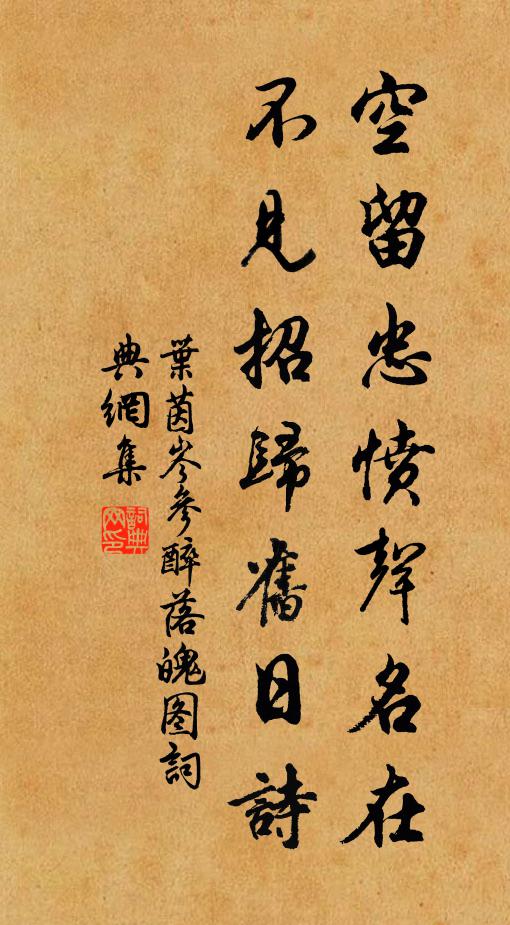 空留忠憤聲名在
不見招歸舊日詩
葉茵岑參醉落魄图詞
典網集
詞典
网印